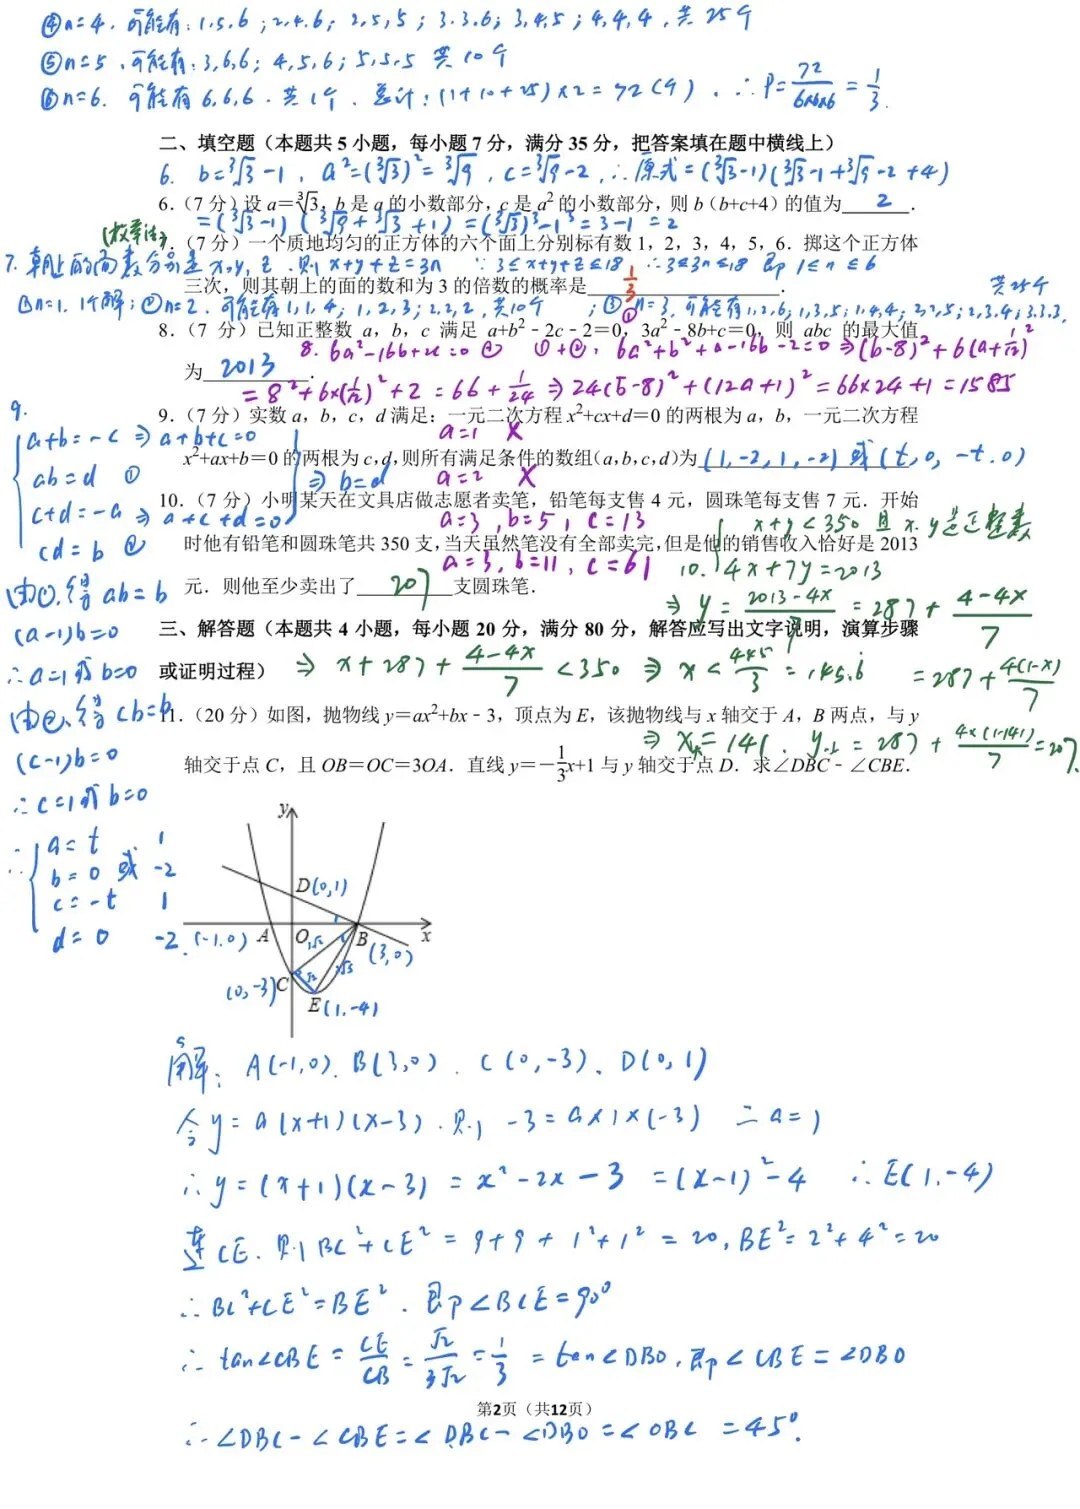 ④n=4. 可能有: 1,5,6; 2,4,6; 2,5,5; 3,3,6; 3,4,5; 4,4,4, 共25个
⑤n=5、可能有: 3,6,6; 4,5,6; 5,5,5 共10个
⑥n=6. 可能有6,6,6. 共1个. 总计: (1+10+25)×2=72(个). ∴P=72/6×6×6=1/3.
二、填空题（本题共5小题，每小题7分，满分35分，把答案填在题中横线上）
6. b=∛3-1, a²=(∛3)²=∛9, c=∛9-2, ∴原式=(∛3-1)(∛3-1+∛9-2+4)
6.（7分）设a=∛3, b是a的小数部分, c是a²的小数部分, 则b(b+c+4)的值为 2 .
=(∛3-1)(∛9+∛3+1)=(∛3)³-1³=3-1=2
(枚举法)
7.（7分）一个质地均匀的正方体的六个面上分别标有数1, 2, 3, 4, 5, 6. 掷这个正方体
7. 朝上的面数分别是x,y,z. 则x+y+z=3n ∵3≤x+y+z≤18 ∴3≤3n≤18 即1≤n≤6
三次，则其朝上的面的数和为3的倍数的概率是 1/3 .
共25个
①n=1. 1个解; ②n=2. 可能有1,1,4; 1,2,3; 2,2,2, 共10个; ③n=3, 可能有1,2,6; 1,3,5; 1,4,4; 2,2,5; 2,3,4; 3,3,3.
8.（7分）已知正整数a, b, c满足a+b²-2c-2=0①, 3a²-8b+c=0, 则abc的最大值
8. 6a²-16b+2c=0② ①+②, 6a²+b²+a-16b-2=0⇒(b-8)²+6(a+1/12)²
为 2013 .
=8²+6×(1/12)²+2=66+1/24⇒24(b-8)²+(12a+1)²=66×24+1=1585
9.（7分）实数a, b, c, d满足：一元二次方程x²+cx+d=0的两根为a, b, 一元二次方程
9.
a+b=-c⇒a+b+c=0
a=1 ×
x²+ax+b=0的两根为c,d,则所有满足条件的数组(a,b,c,d)为 (1,-2,1,-2)或(t,0,-t,0)
ab=d ①
⇒b=d
a=2 ×
10.（7分）小明某天在文具店做志愿者卖笔，铅笔每支售4元，圆珠笔每支售7元．开始
c+d=-a⇒a+c+d=0
a=3,b=5,c=13
x+y<350且x.y是正整数
时他有铅笔和圆珠笔共350支,当天虽然笔没有全部卖完,但是他的销售收入恰好是2013
cd=b ②
a=3,b=11,c=61
10. 4x+7y=2013
元．则他至少卖出了 207 支圆珠笔．
由①,得ab=b
⇒y=2013-4x/7=287+4-4x/7
(a-1)b=0
三、解答题（本题共4小题，每小题20分，满分80分，解答应写出文字说明，演算步骤
或证明过程）
⇒x+287+4-4x/7<350⇒x<445/3=145.6
=287+4(1-x)/7
∴a=1或b=0
由②,得cb=b
11.（20分）如图，抛物线y=ax²+bx-3，顶点为E，该抛物线与x轴交于A，B两点，与y
(c-1)b=0
⇒x大=141. y小=287+4×(1-141)/7=207.
轴交于点C，且OB=OC=3OA．直线y=-1/3x+1与y轴交于点D．求∠DBC-∠CBE．
∴c=1或b=0
∴ a=t 1
b=0 或 -2
c=-t 1
d=0 -2.
y
D(0,1)
(-1,0) A O B x
(3,0)
3√2
2√5
√2
(0,-3) C
E(1,-4)
解: A(-1,0). B(3,0). C(0,-3)、D(0,1)
令y=a(x+1)(x-3).则-3=a×1×(-3) ∴a=1
∴y=(x+1)(x-3)=x²-2x-3=(x-1)²-4 ∴E(1,-4)
连CE.则BC²+CE²=9+9+1²+1²=20,BE²=2²+4²=20
∴BC²+CE²=BE².即∠BCE=90°
∴tan∠CBE=CE/CB=√2/3√2=1/3=tan∠DBO,即∠CBE=∠DBO
第2页（共12页）
∴∠DBC-∠CBE=∠DBC-∠DBO=∠OBC=45°.